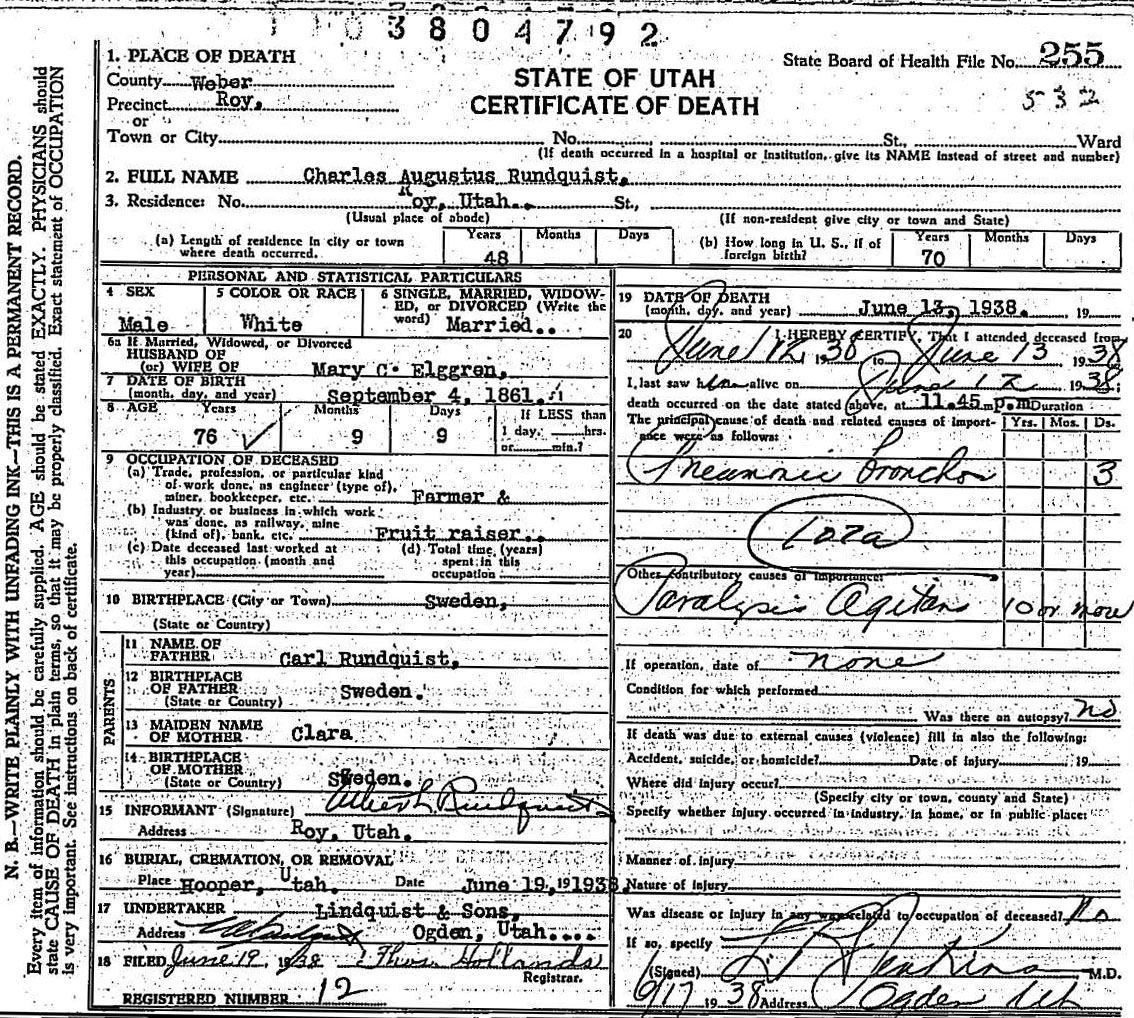 3804792
1. PLACE OF DEATH
County Weber
Precinct Roy,
or
Town or City No. St., Ward
(If death occurred in a hospital or institution, give its NAME instead of street and number)
STATE OF UTAH
CERTIFICATE OF DEATH
State Board of Health File No. 255
532
2. FULL NAME Charles Augustus Rundquist,
3. Residence: No. Roy, Utah. St.,
(Usual place of abode) (If non-resident give city or town and State)
(a) Length of residence in city or town where death occurred. Years 48 Months Days
(b) How long in U. S., if of foreign birth? Years 70 Months Days
PERSONAL AND STATISTICAL PARTICULARS
4 SEX Male
5 COLOR OR RACE White
6 SINGLE, MARRIED, WIDOWED, or DIVORCED (Write the word) Married..
6a If Married, Widowed, or Divorced
HUSBAND OF
(or) WIFE OF Mary C. Elggren,
7 DATE OF BIRTH
(month, day, and year) September 4, 1861.
8 AGE Years 76 Months 9 Days 9 If LESS than 1 day, hrs. or min.?
9 OCCUPATION OF DECEASED
(a) Trade, profession, or particular kind
of work done, as engineer (type of),
miner, bookkeeper, etc. Farmer &
(b) Industry or business in which work
was done, as railway, mine
(kind of), bank, etc. Fruit raiser..
(c) Date deceased last worked at this occupation (month and year)
(d) Total time (years) spent in this occupation
10 BIRTHPLACE (City or Town) Sweden,
(State or Country)
PARENTS
11 NAME OF
FATHER Carl Rundquist,
12 BIRTHPLACE
OF FATHER Sweden.
(State or Country)
13 MAIDEN NAME
OF MOTHER Clara
14 BIRTHPLACE
OF MOTHER
(State or Country) Sweden.
15 INFORMANT (Signature) Albert Rundquist
Address Roy, Utah.
16 BURIAL, CREMATION, OR REMOVAL
Place Hooper, Utah. Date June 19, 19 1938.
17 UNDERTAKER Lindquist & Sons,
Address Ogden, Utah....
18 FILED June 19 1938 Thos. Hollands
Registrar.
REGISTERED NUMBER 12
19 DATE OF DEATH
(month, day, and year) June 13, 1938. 19
20 I HEREBY CERTIFY, That I attended deceased from
June 12, 1938 to June 13 1938
I last saw him alive on June 12 1938;
death occurred on the date stated above, at 11.45 m p.m Duration
The principal cause of death and related causes of importance were as follows: Yrs. Mos. Ds.
Pneumonic Broncho 3
107a
Other contributory causes of importance:
Paralysis Agitans 10 or more
If operation, date of none
Condition for which performed
Was there an autopsy? no
If death was due to external causes (violence) fill in also the following:
Accident, suicide, or homicide? Date of injury 19
Where did injury occur?
(Specify city or town, county and State)
Specify whether injury occurred in industry, in home, or in public place:
Manner of injury
Nature of injury
Was disease or injury in any way related to occupation of deceased? No
If so, specify
(Signed) Jenkins M.D.
6/17 1938 Address Ogden Ut
N. B.—WRITE PLAINLY WITH UNFADING INK—THIS IS A PERMANENT RECORD.
Every item of information should be carefully supplied. AGE should be stated EXACTLY. PHYSICIANS should
state CAUSE OF DEATH in plain terms, so that it may be properly classified. Exact statement of OCCUPATION
is very important. See instructions on back of certificate.